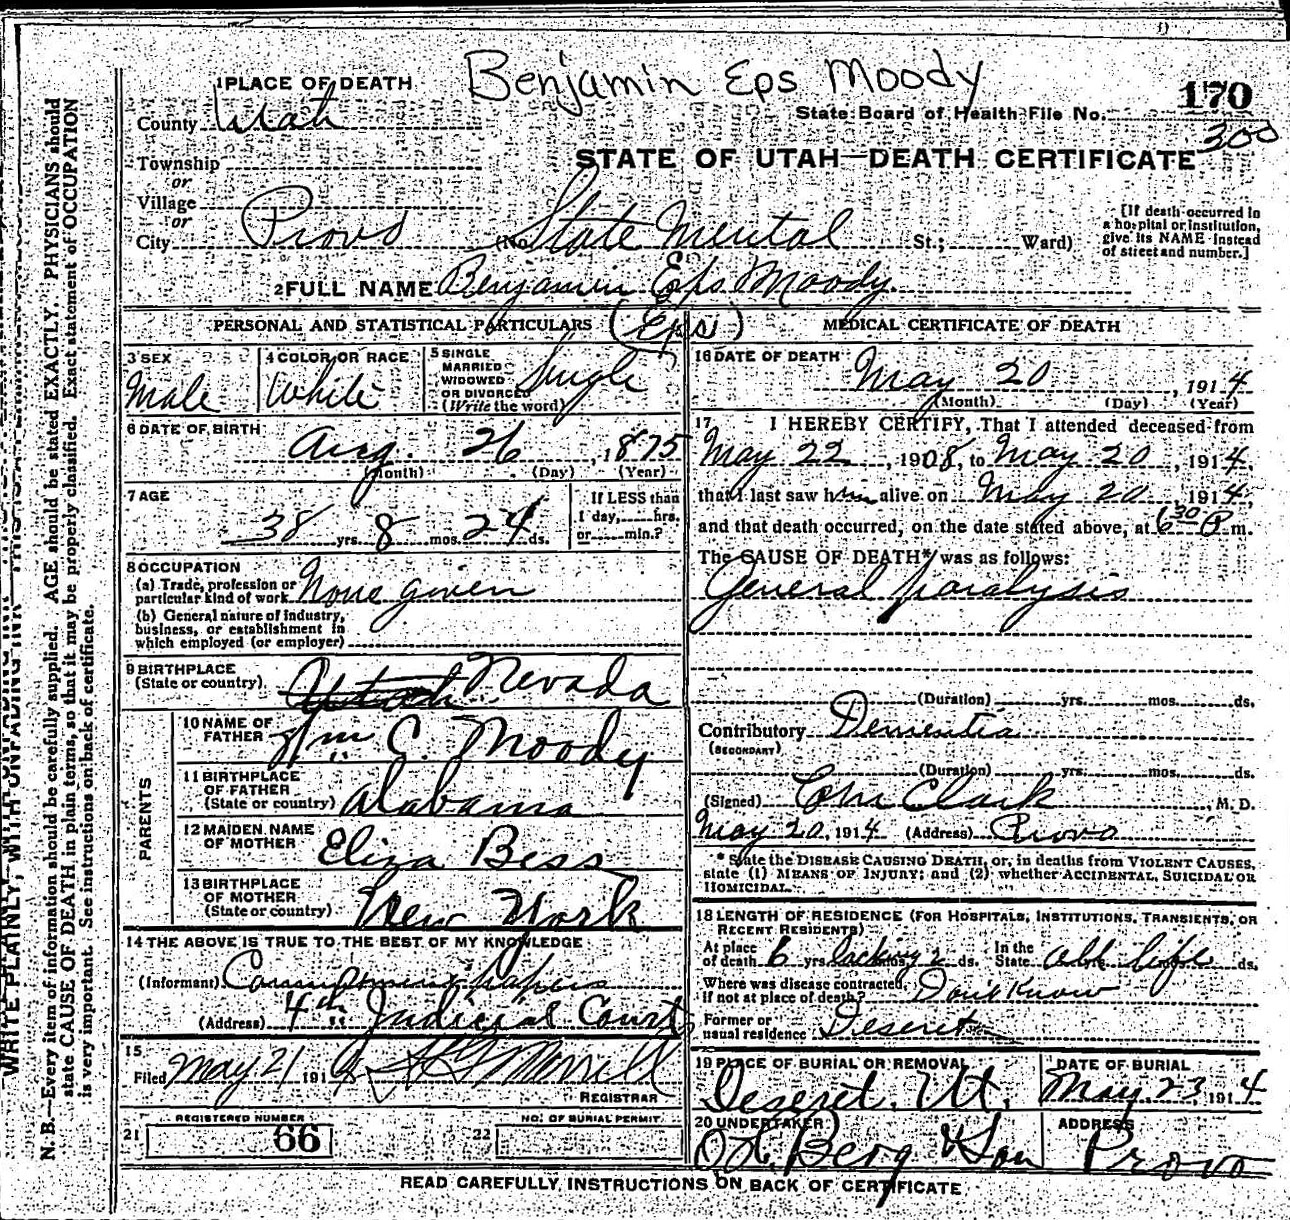 Benjamin Eps Moody
1 PLACE OF DEATH
County Utah
State Board of Health File No. 170
300
Township
or
Village
or
City Provo
STATE OF UTAH—DEATH CERTIFICATE
(No. State Mental St.; Ward)
[If death occurred in
a hospital or institution,
give its NAME instead
of street and number.]
2 FULL NAME Benjamin Eps Moody
(Eps)
PERSONAL AND STATISTICAL PARTICULARS
3 SEX
Male
4 COLOR OR RACE
White
5 SINGLE
MARRIED
WIDOWED
OR DIVORCED
(Write the word)
Single
6 DATE OF BIRTH
Aug. 26, 1875
(Month) (Day) (Year)
7 AGE
38 yrs. 8 mos. 24 ds.
If LESS than
1 day, hrs.
or min.?
8 OCCUPATION
(a) Trade, profession or
particular kind of work None given
(b) General nature of industry,
business, or establishment in
which employed (or employer)
9 BIRTHPLACE
(State or country) Utah Nevada
PARENTS
10 NAME OF
FATHER Wm C. Moody
11 BIRTHPLACE
OF FATHER
(State or country) Alabama
12 MAIDEN NAME
OF MOTHER Eliza Bess
13 BIRTHPLACE
OF MOTHER
(State or country) New York
14 THE ABOVE IS TRUE TO THE BEST OF MY KNOWLEDGE
(Informant) papers
(Address) 4th Judicial Court
15
Filed May 21 191
REGISTRAR
REGISTERED NUMBER
21 66
NO. OF BURIAL PERMIT
22
MEDICAL CERTIFICATE OF DEATH
16 DATE OF DEATH
May 20, 1914
(Month) (Day) (Year)
17 I HEREBY CERTIFY, That I attended deceased from
May 22, 1908, to May 20, 1914,
that I last saw him alive on May 20, 1914,
and that death occurred, on the date stated above, at 6 30 P m.
The CAUSE OF DEATH* was as follows:
General Paralysis
(Duration) yrs. mos. ds.
Contributory Dementia
(SECONDARY)
(Duration) yrs. mos. ds.
(Signed) Clark, M. D.
May 20, 1914 (Address) Provo
* State the DISEASE CAUSING DEATH, or, in deaths from VIOLENT CAUSES,
state (1) MEANS OF INJURY; and (2) whether ACCIDENTAL, SUICIDAL OR
HOMICIDAL.
18 LENGTH OF RESIDENCE (FOR HOSPITALS, INSTITUTIONS, TRANSIENTS, OR
RECENT RESIDENTS)
At place
of death 6 yrs. lacking mos. 2 ds.
In the
State all life ds.
Where was disease contracted,
if not at place of death? Don't Know
Former or
usual residence Deseret
19 PLACE OF BURIAL OR REMOVAL
Deseret, Ut.
DATE OF BURIAL
May. 23 1914
20 UNDERTAKER
Berg & Son
ADDRESS
Provo
READ CAREFULLY INSTRUCTIONS ON BACK OF CERTIFICATE
N. B.—Every item of information should be carefully supplied. AGE should be stated EXACTLY. PHYSICIANS should
state CAUSE OF DEATH in plain terms, so that it may be properly classified. Exact statement of OCCUPATION
is very important. See instructions on back of certificate.
WRITE PLAINLY, WITH UNFADING INK